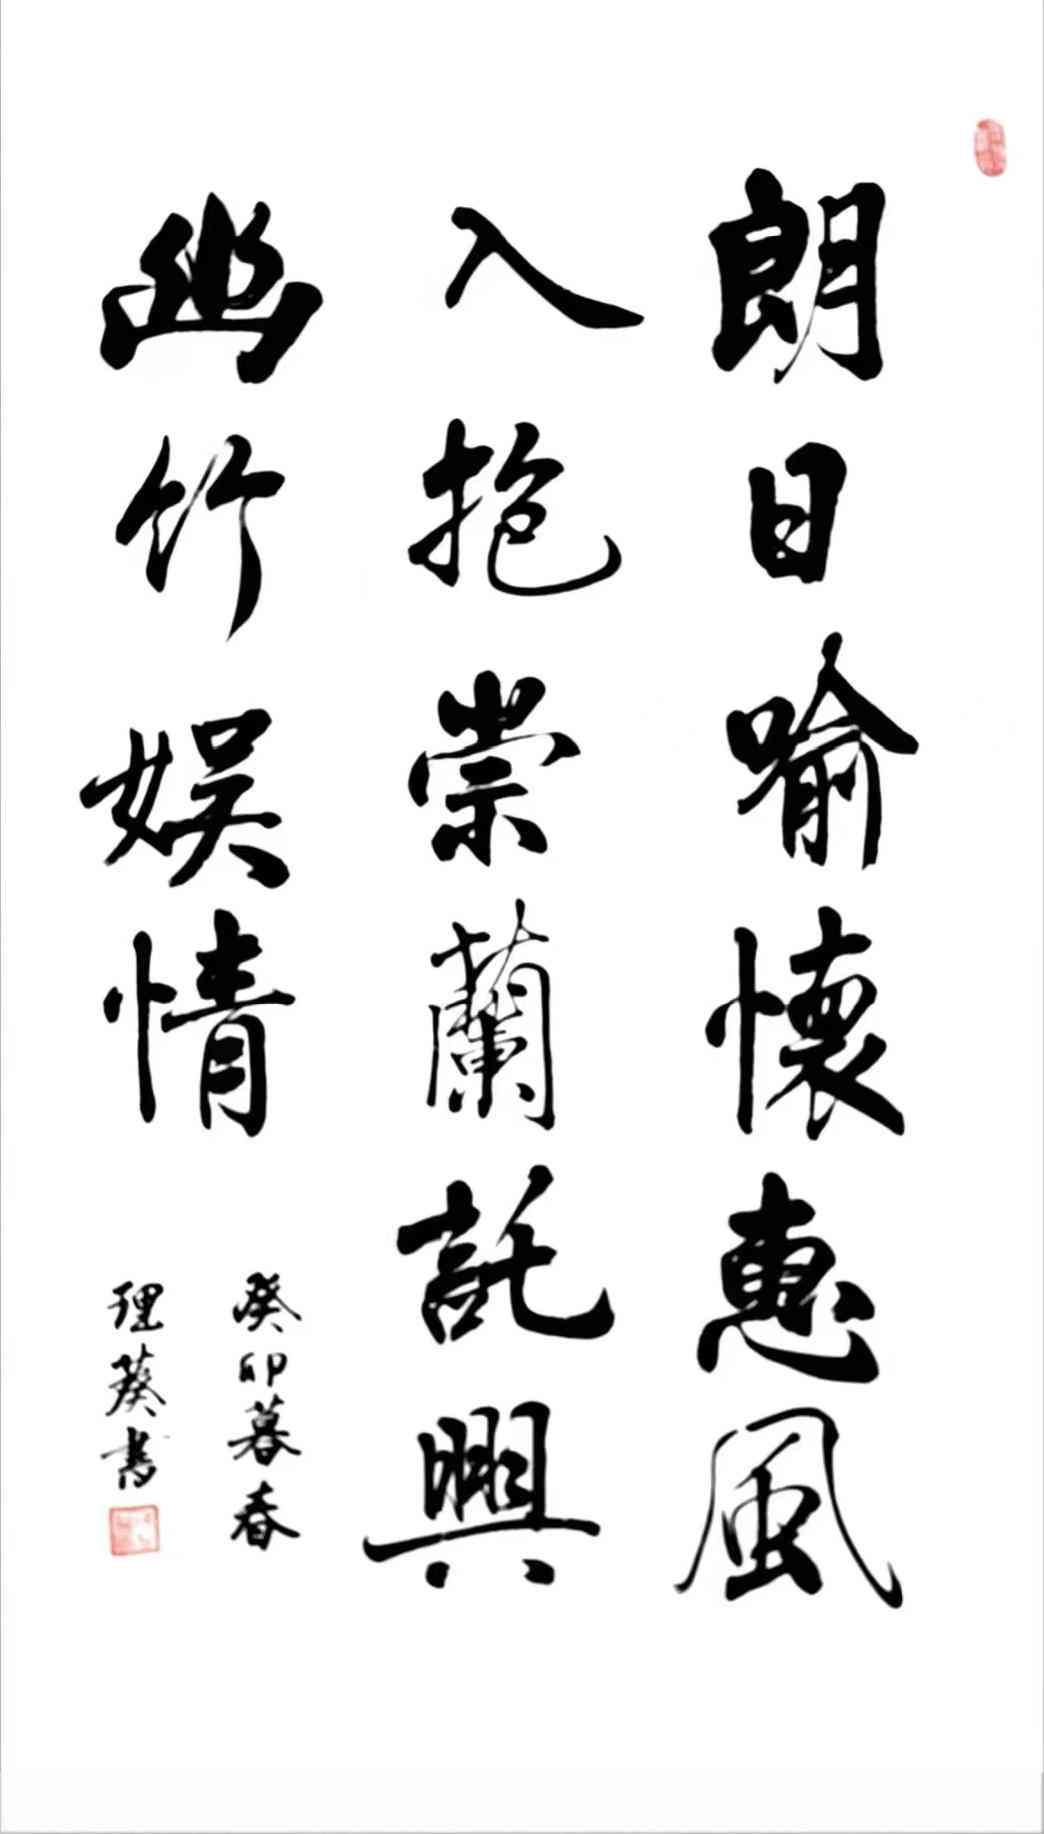 朗日喻懷惠風
入抱崇蘭託興
幽竹娛情
癸卯暮春
理葵書